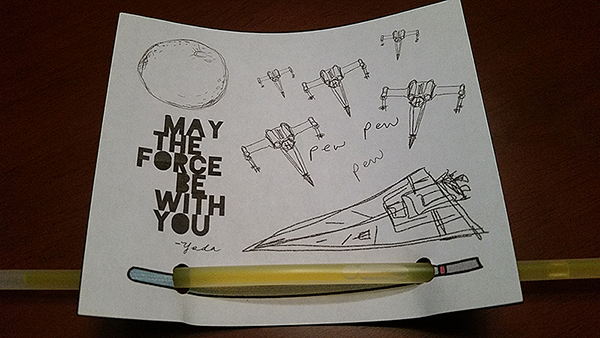 MAY
THE
FORCE
BE
WITH
YOU
-Yoda
pew pew
pew